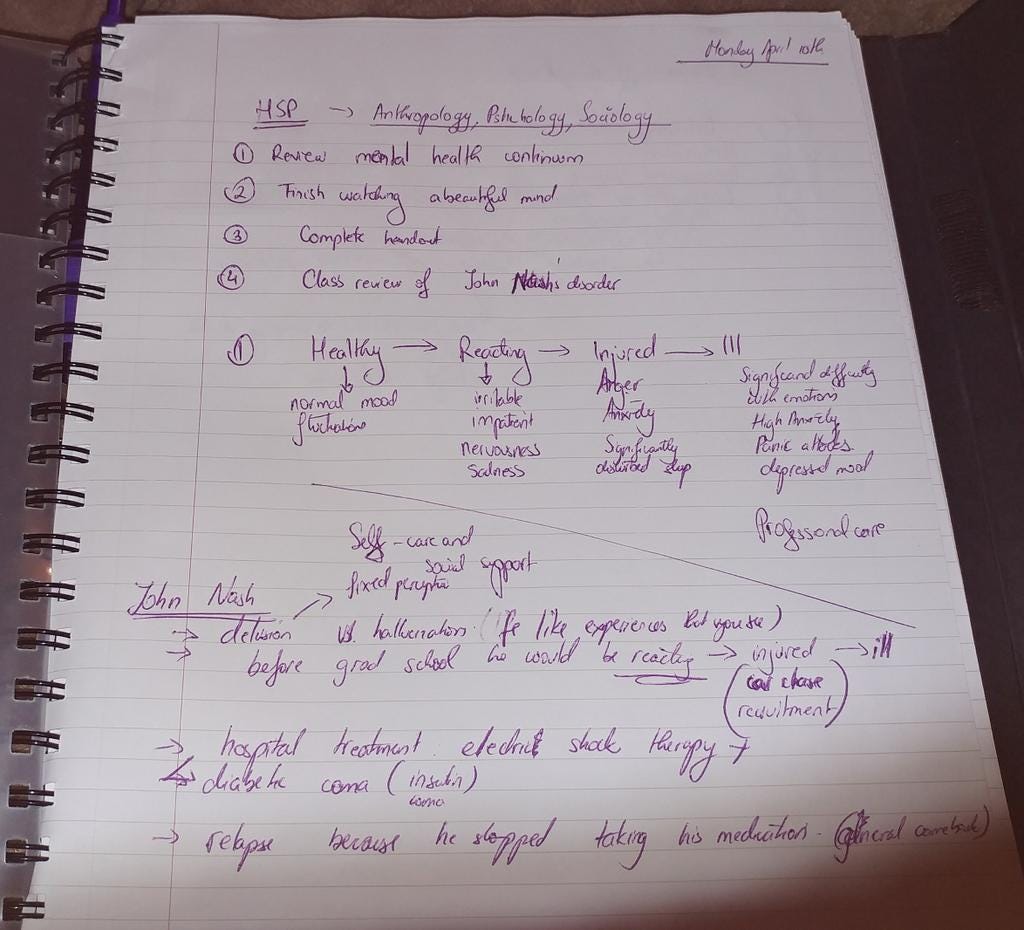 Monday April 10th
HSP → Anthropology, Pshchology, Sociology
① Review mental health continuum
② Finish watching abeautiful mind
③ Complete handout
④ Class review of John Nash's disorder
① Healthy → Reacting → Injured → Ill
normal mood fluctuations
irritable
impatient
nervousness
sadness
Anger
Anxiety
Significantly
disturbed sleep
Significand difficulty
with emotions
High Anxiety
Panic attacks
depressed mood
Self-care and
social support
Professional care
fixed
John Nash
→ delusion vs hallucination (life like experiences But you see)
→ before grad school he would be reacting → injured → ill
(car chase
recruitment)
→ hospital treatment: electrick shock therapy →
↳ diabetic coma (insulin
coma)
→ relapse because he stopped taking his medication. (general comeback)